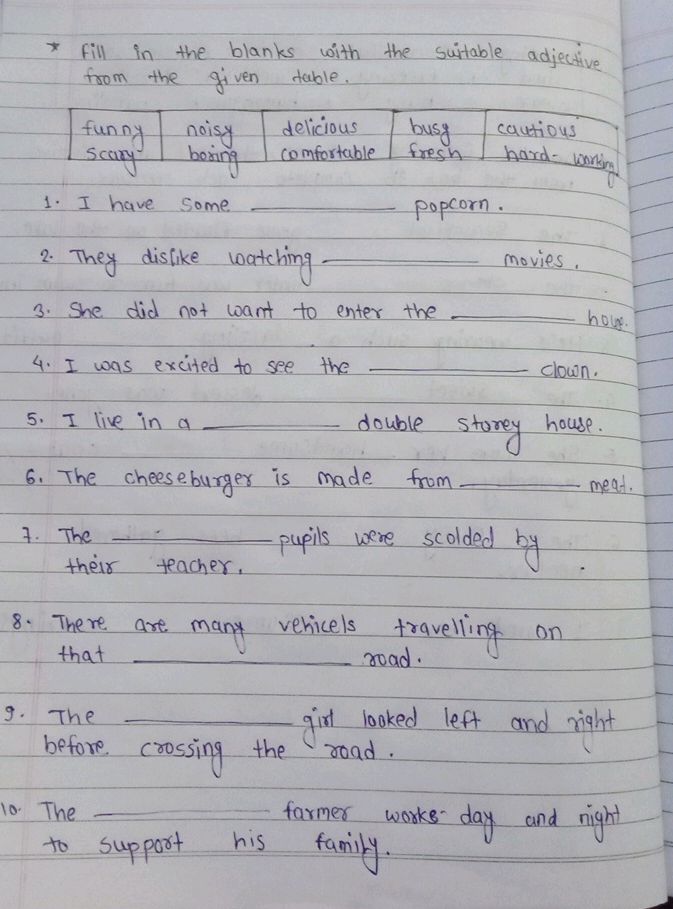 * fill in the blanks with the suitable adjective
from the given table.
funny noisy delicious busy cautious
scary boring comfortable fresh hard-working
1. I have some ________ popcorn.
2. They dislike watching ________ movies.
3. She did not want to enter the ________ house.
4. I was excited to see the ________ clown.
5. I live in a ________ double storey house.
6. The cheeseburger is made from ________ meat.
7. The ________ pupils were scolded by
their teacher.
8. There are many vehicels travelling on
that ________ road.
9. The ________ girl looked left and right
before crossing the road.
10. The ________ farmer works day and night
to support his family.